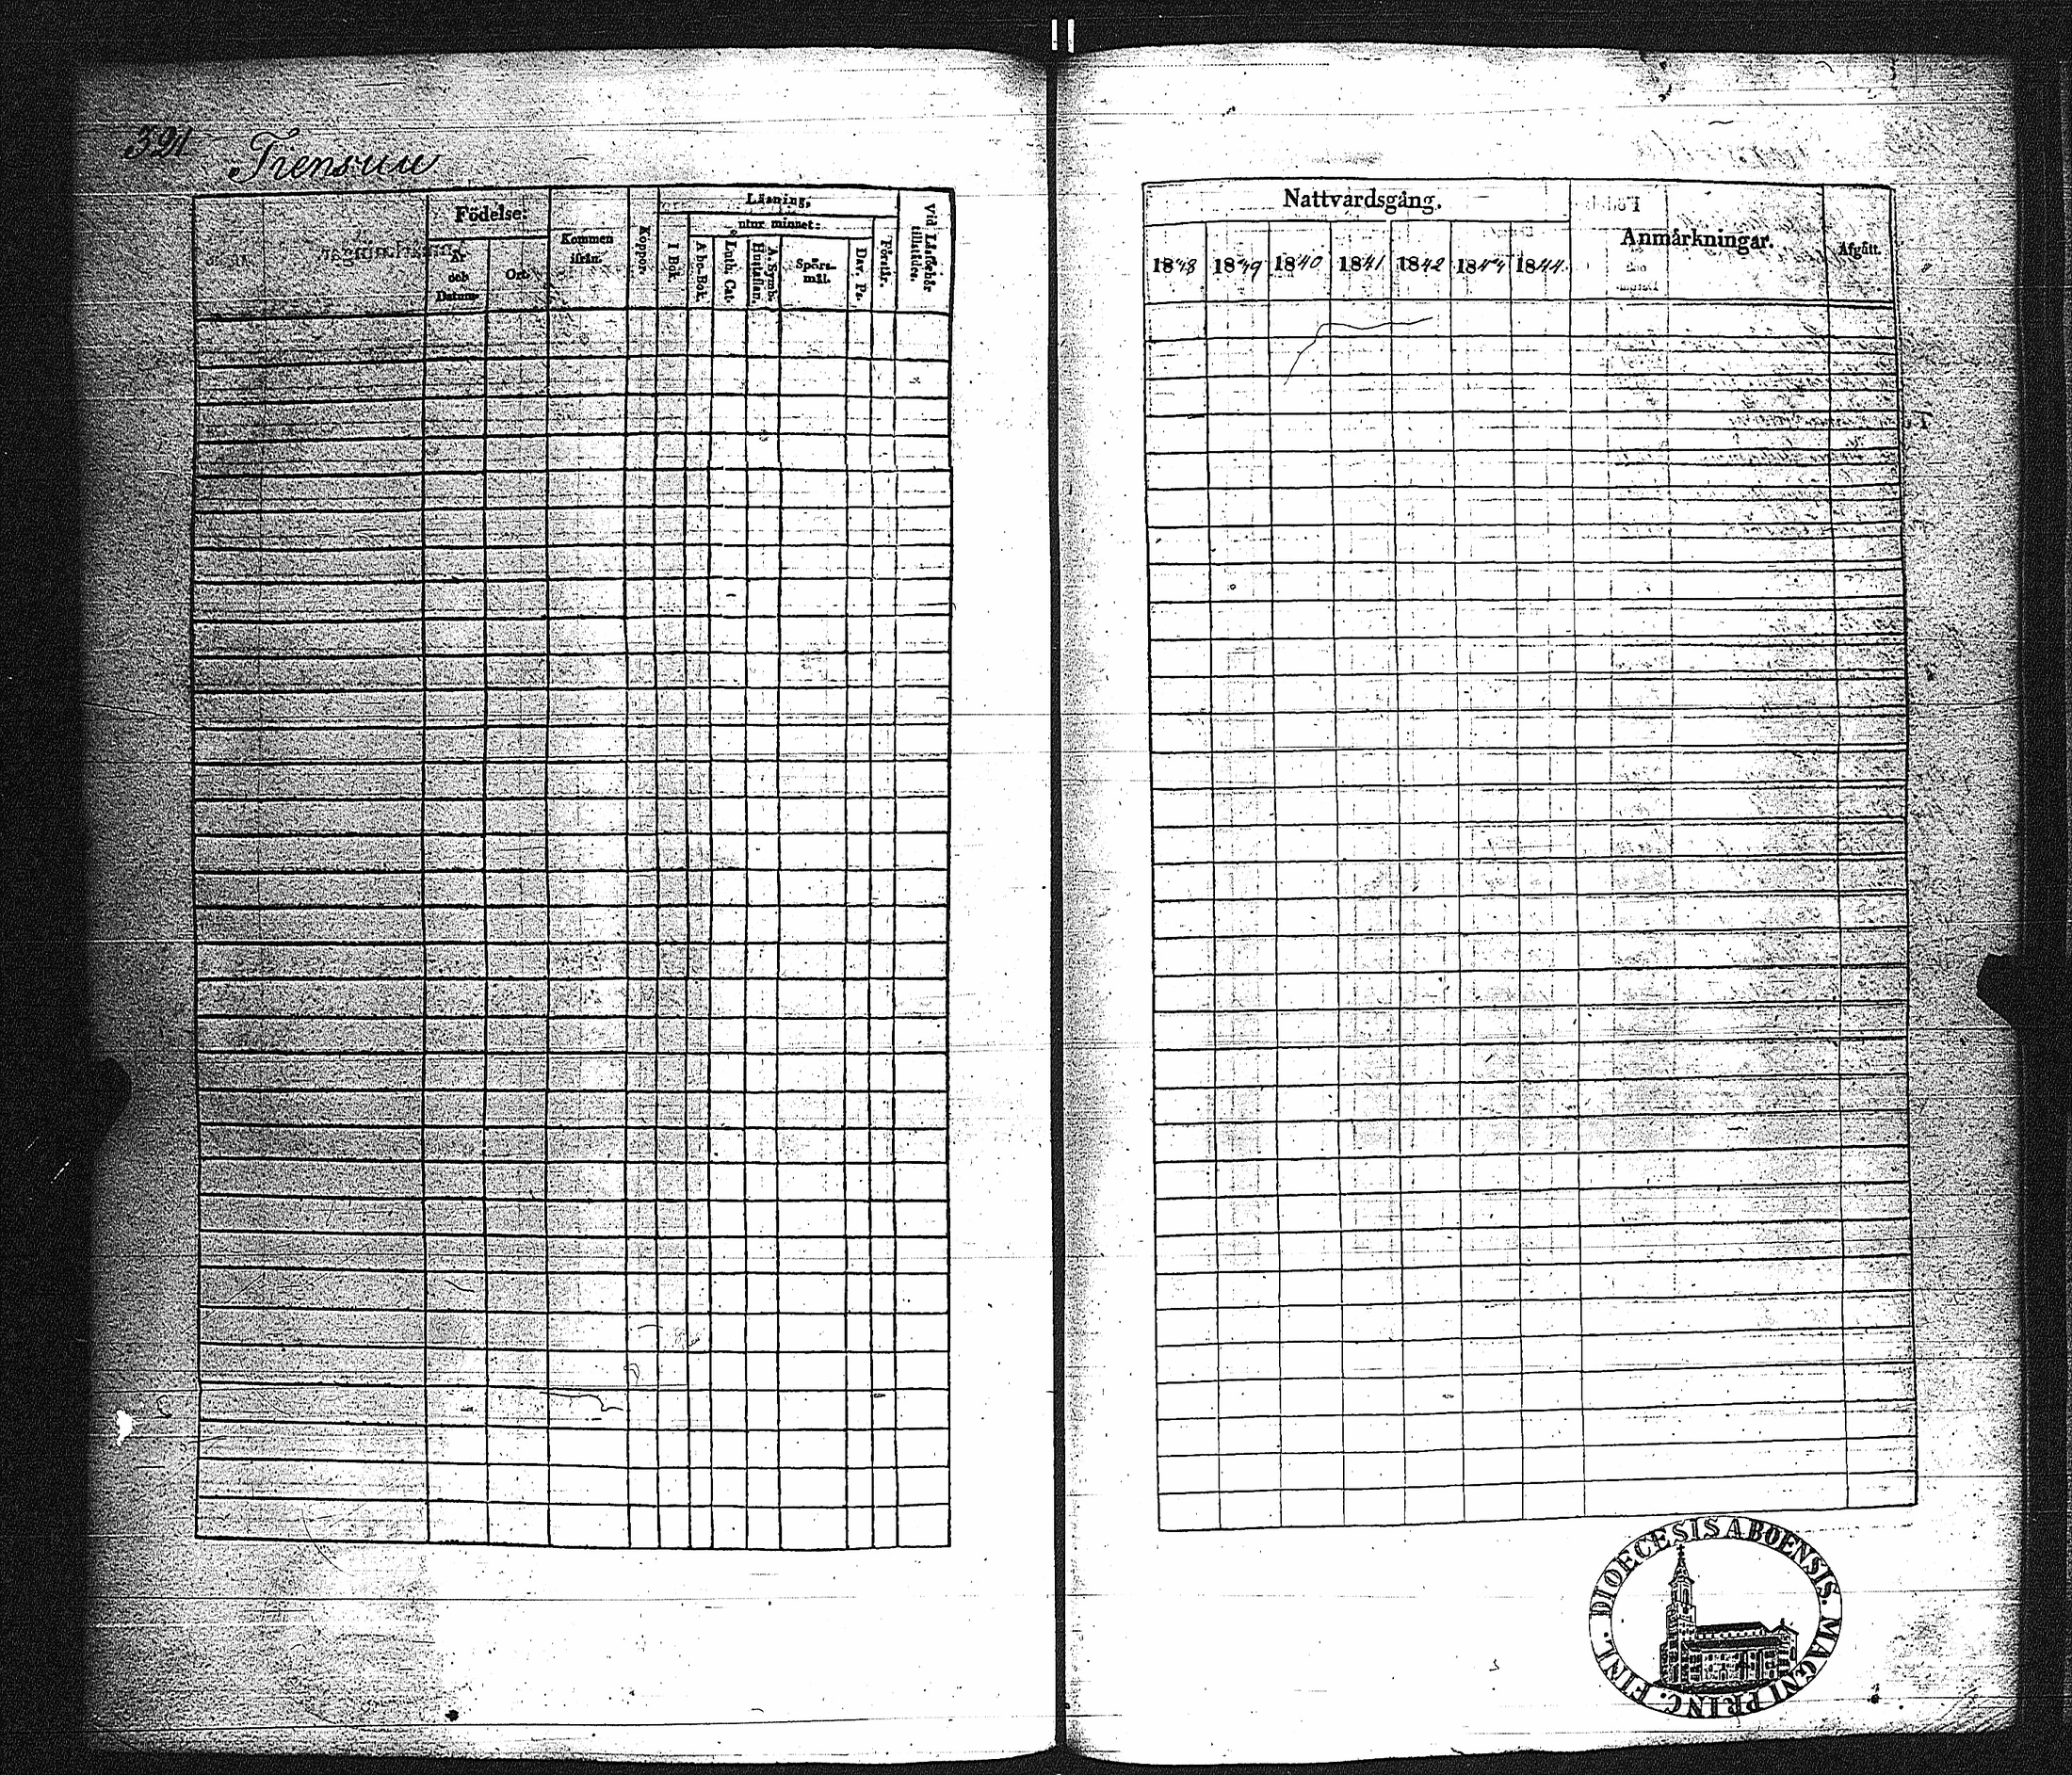 321
Tiensuu
Födelse:
År och Datum.
Ort.
Kommen ifrån.
Koppor.
Läsning,
utur minnet:
I Bok.
Abc-Bok.
Luth. Cat.
A. Symb. Hustaflan.
Spörs-mål.
Dav. Ps.
Förstår.
Vid Läsförhör tillstädes.
Nattvardsgång.
1838 1839 1840 1841 1842 1843 1844.
Anmärkningar.
Afgått.
DIOECESIS ABOENSIS. MAGNI PRINC. FINL.